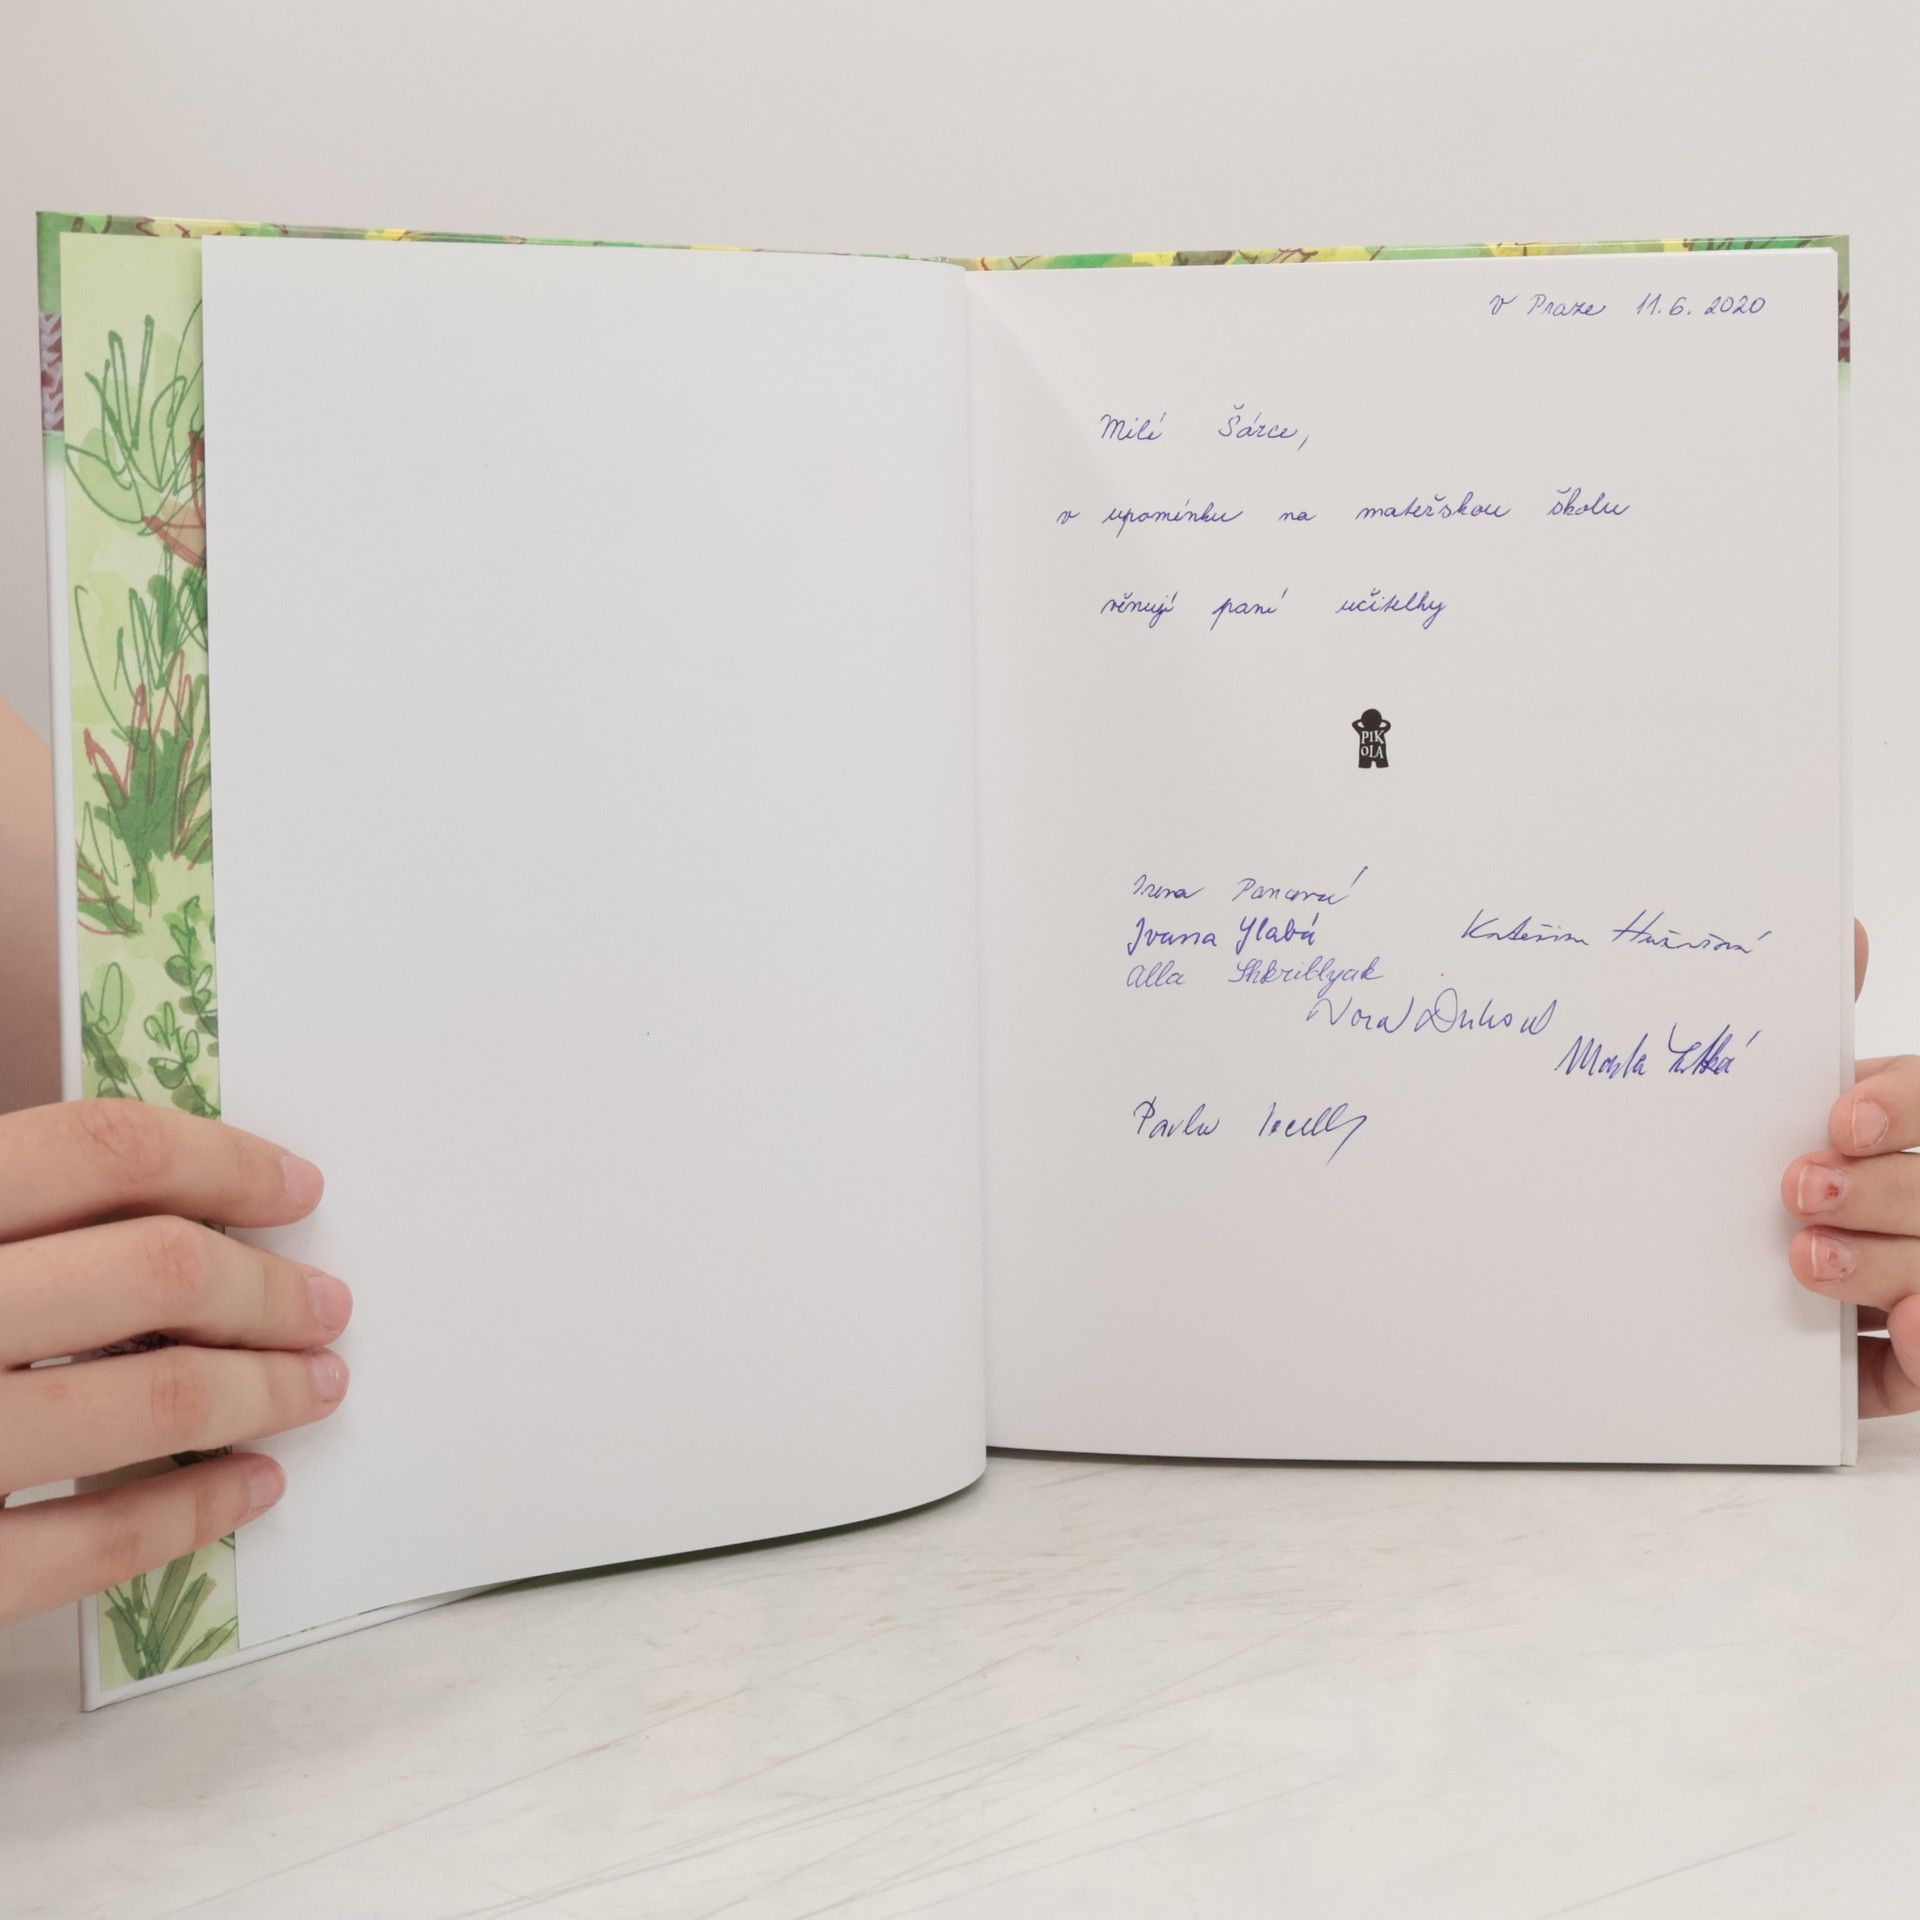 v Praze 11.6. 2020
Milé Šárce,
v upomínku na mateřskou školu
věnují paní učitelky
PIK
OLA
Irena Pancová
Ivana Hlabá
Kateřina
Alla Shkriblyak
Nora
Pavla